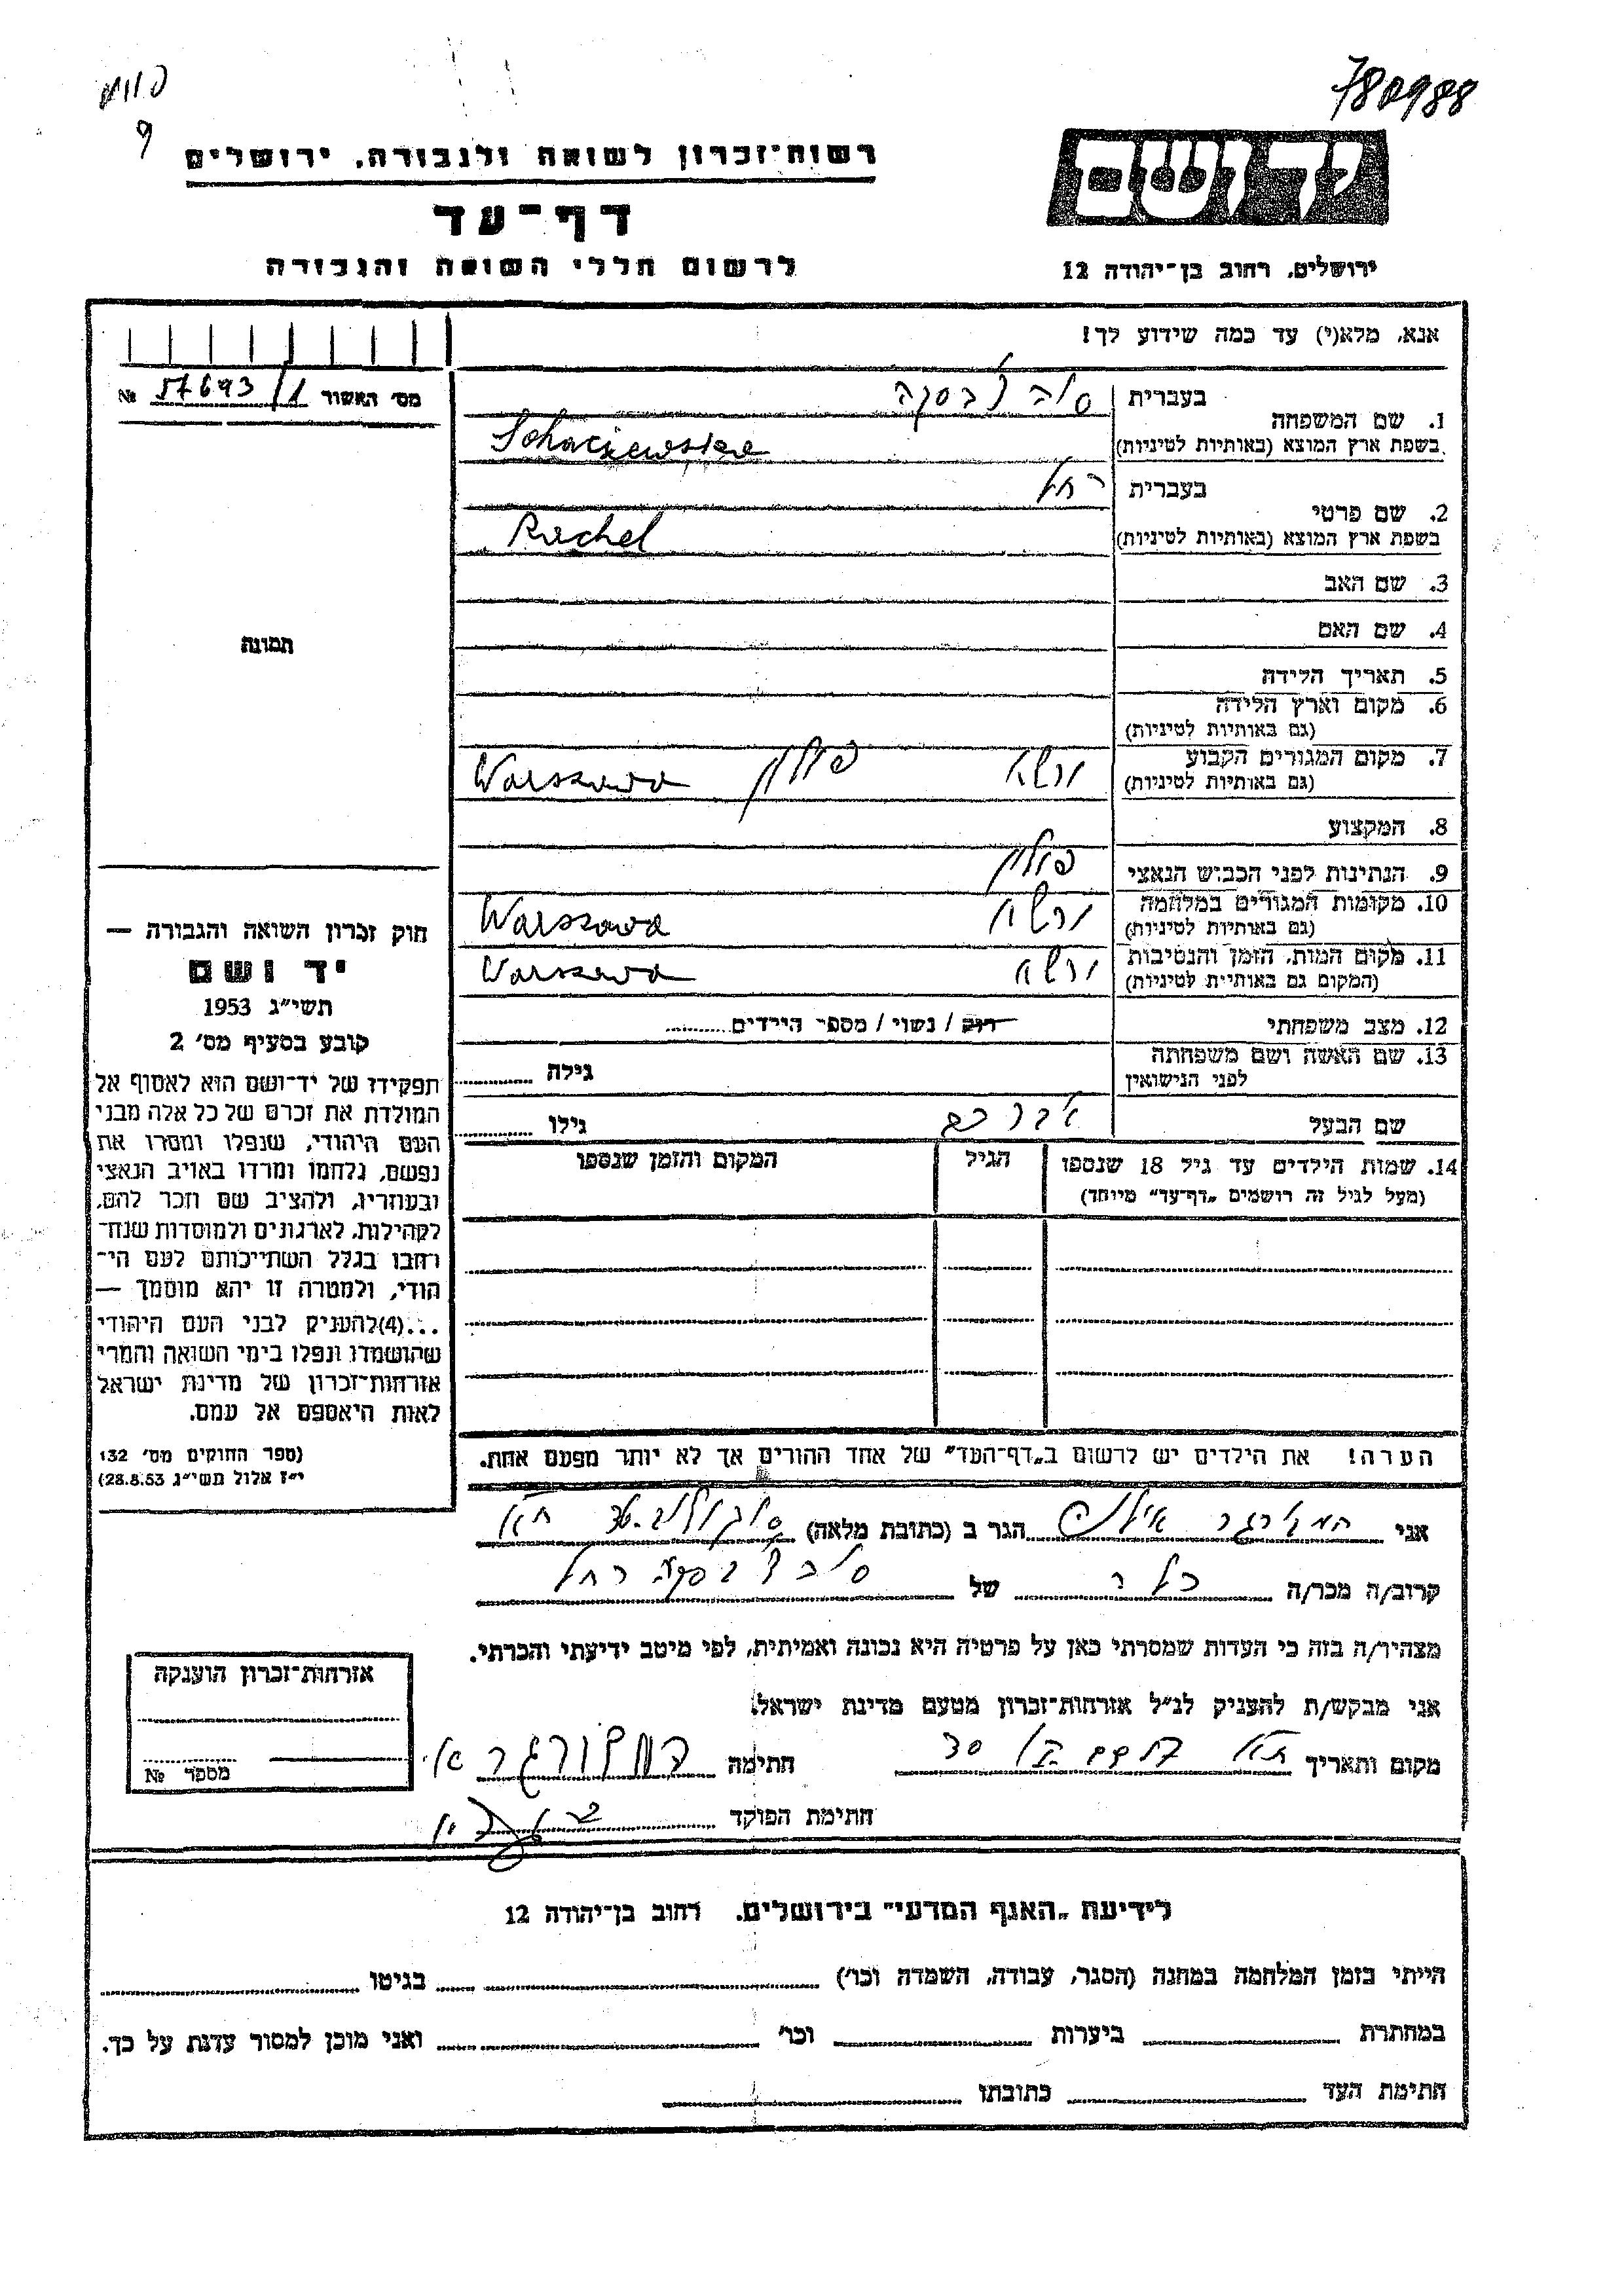 780988
רשות־זכרון לשואה ולגבורה, ירושלים
יד ושם
דף־עד
לרשום חללי השואה והגבורה
ירושלים, רחוב בן־יהודה 12
אנא, מלא(י) עד כמה שידוע לך!
מס' האשור 57693/1 №
1. שם המשפחה
בעברית
בשפת ארץ המוצא (באותיות לטיניות)
2. שם פרטי
בעברית רחל
בשפת ארץ המוצא (באותיות לטיניות) Rachel
3. שם האב
4. שם האם
5. תאריך הלידה
6. מקום וארץ הלידה
(גם באותיות לטיניות)
7. מקום המגורים הקבוע ורשה פולין Warszawa
(גם באותיות לטיניות)
8. המקצוע
9. הנתינות לפני הכבוש הנאצי פולין
10. מקומות המגורים במלחמה ורשה Warszawa
(גם באותיות לטיניות)
11. מקום המות, הזמן והנסיבות ורשה Warszawa
(המקום גם באותיות לטיניות)
12. מצב משפחתי רווק / נשוי / מספר הילדים
13. שם האשה ושם משפחתה
לפני הנישואין
גילה
שם הבעל אברהם גילו
14. שמות הילדים עד גיל 18 שנספו
(מעל לגיל זה רושמים „דף־עד" מיוחד)
הגיל
המקום והזמן שנספו
הערה! את הילדים יש לרשום ב„דף־העד" של אחד ההורים אך לא יותר מפעם אחת.
תמונה
חוק זכרון השואה והגבורה —
יד ושם
תשי״ג 1953
קובע בסעיף מס' 2
תפקידו של יד־ושם הוא לאסוף אל
המולדת את זכרם של כל אלה מבני
העם היהודי, שנפלו ומסרו את
נפשם, נלחמו ומרדו באויב הנאצי
ובעוזריו, ולהציב שם וזכר להם,
לקהילות, לארגונים ולמוסדות שנח־
רחבו בגלל השתייכותם לעם הי־
הודי, ולמטרה זו יהא מוסמך —
...(4)להעניק לבני העם היהודי
שהושמדו ונפלו בימי השואה והמרי
אזרחות־זכרון של מדינת ישראל
לאות היאספם אל עמם.
(ספר החוקים מס' 132
י״ז אלול תשי״ג 28.8.53)
אני הגר ב (כתובת מלאה)
קרוב/ה מכר/ה של רחל
מצהיר/ה בזה כי העדות שמסרתי כאן על פרטיה היא נכונה ואמיתית, לפי מיטב ידיעתי והכרתי.
אני מבקש/ת להעניק לנ״ל אזרחות־זכרון מטעם מדינת ישראל.
מקום ותאריך חתימה
חתימת הפוקד
אזרחות־זכרון הוענקה
מספר №
לידיעת „האגף המדעי" בירושלים, רחוב בן־יהודה 12
הייתי בזמן המלחמה במחנה (הסגר, עבודה, השמדה וכו') בגיטו
במחתרת ביערות וכו' ואני מוכן למסור עדות על כך.
חתימת העד כתובתו